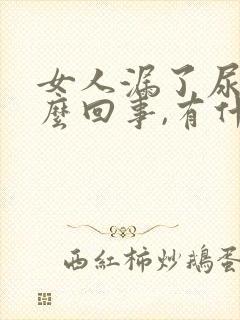 女人漏了尿
麼回事,有什
西紅柿炒鵝蛋